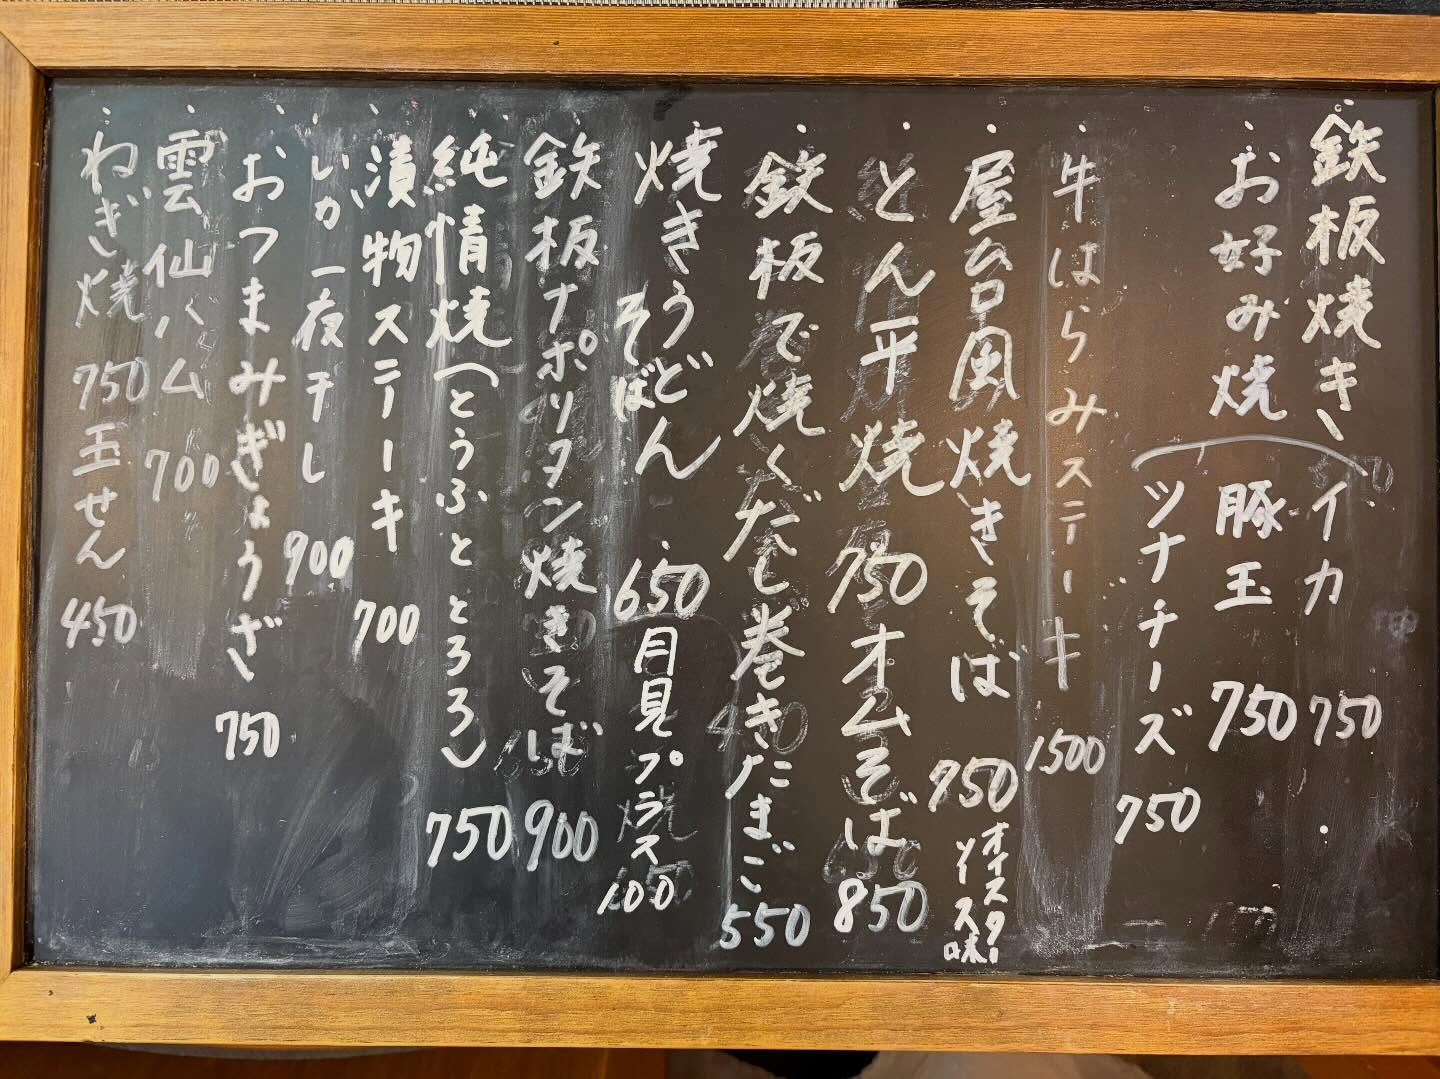 鉄板焼き
イカ 750
・お好み焼
豚玉 750
ツナチーズ 750
・牛はらみステーキ 1500
・屋台風焼きそば 750
オイスターソース味
・とん平焼 750 オムそば 850
・鉄板で焼くだし巻きたまご 550
焼きうどん
そば
・650 月見プラス 100
・鉄板ナポリタン焼きそば 900
・純情焼(とうふととろろ) 750
・漬物ステーキ 700
・いか一夜干し 900
・おつまみぎょうざ 750
・雲仙ハム 700
・ねぎ焼 750 玉せん 450